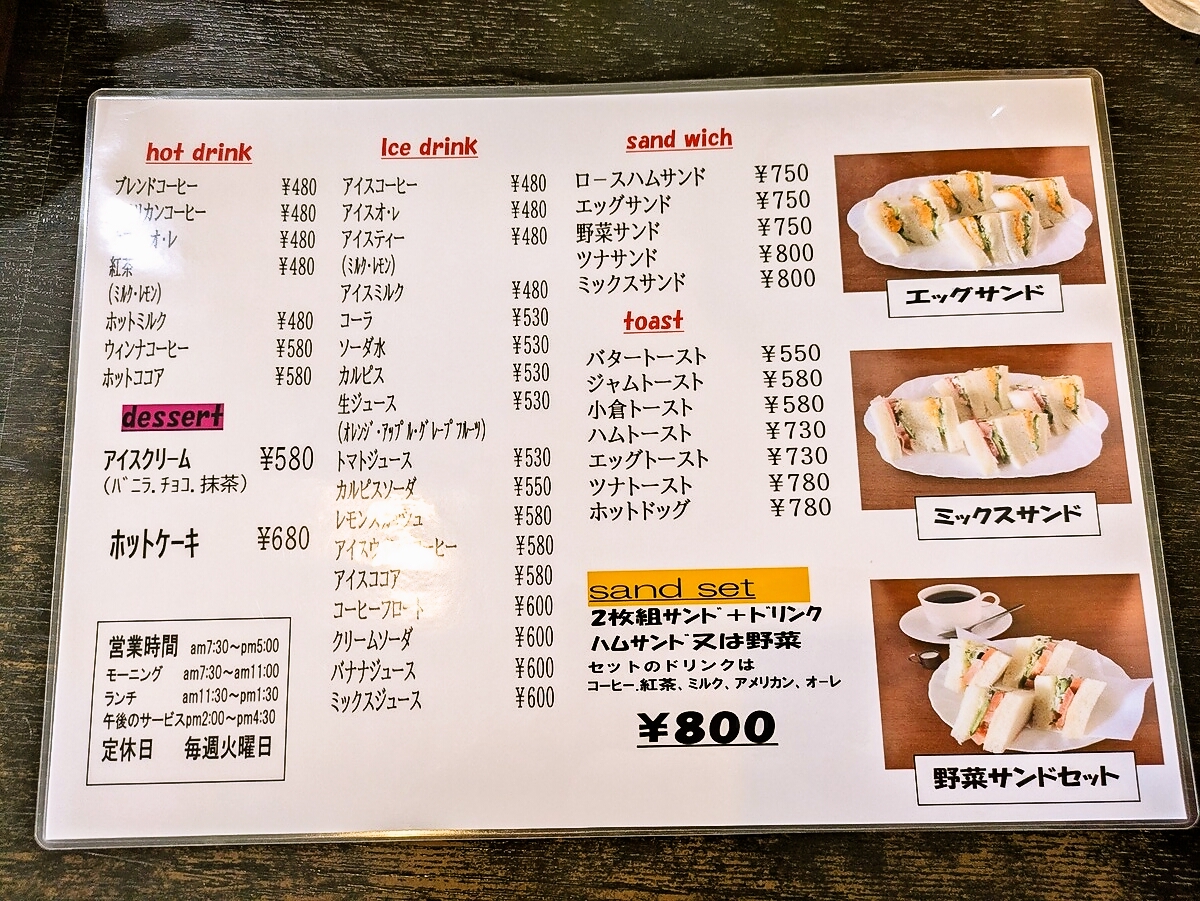 hot drink
ブレンドコーヒー ¥480
リカンコーヒー ¥480
オ・レ ¥480
紅茶 ¥480
(ミルク・レモン)
ホットミルク ¥480
ウィンナコーヒー ¥580
ホットココア ¥580
dessert
アイスクリーム ¥580
(バニラ.チョコ.抹茶)
ホットケーキ ¥680
営業時間 am7:30～pm5:00
モーニング am7:30～am11:00
ランチ am11:30～pm1:30
午後のサービスpm2:00～pm4:30
定休日 毎週火曜日
Ice drink
アイスコーヒー ¥480
アイスオ・レ ¥480
アイスティー ¥480
(ミルク・レモン)
アイスミルク ¥480
コーラ ¥530
ソーダ水 ¥530
カルピス ¥530
生ジュース ¥530
(オレンジ・アップル・グレープフルーツ)
トマトジュース ¥530
カルピスソーダ ¥550
レモンスカッシュ ¥580
アイスウ コーヒー ¥580
アイスココア ¥580
コーヒーフロート ¥600
クリームソーダ ¥600
バナナジュース ¥600
ミックスジュース ¥600
sand wich
ロースハムサンド ¥750
エッグサンド ¥750
野菜サンド ¥750
ツナサンド ¥800
ミックスサンド ¥800
toast
バタートースト ¥550
ジャムトースト ¥580
小倉トースト ¥580
ハムトースト ¥730
エッグトースト ¥730
ツナトースト ¥780
ホットドッグ ¥780
sand set
2枚組サンド＋ドリンク
ハムサンド又は野菜
セットのドリンクは
コーヒー.紅茶、ミルク、アメリカン、オーレ
¥800
エッグサンド
ミックスサンド
野菜サンドセット